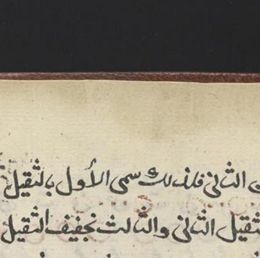 الثاني فلذلك سمى الأول بالثقيل
لثقيل الثاني والثالث بخفيف الثقيل